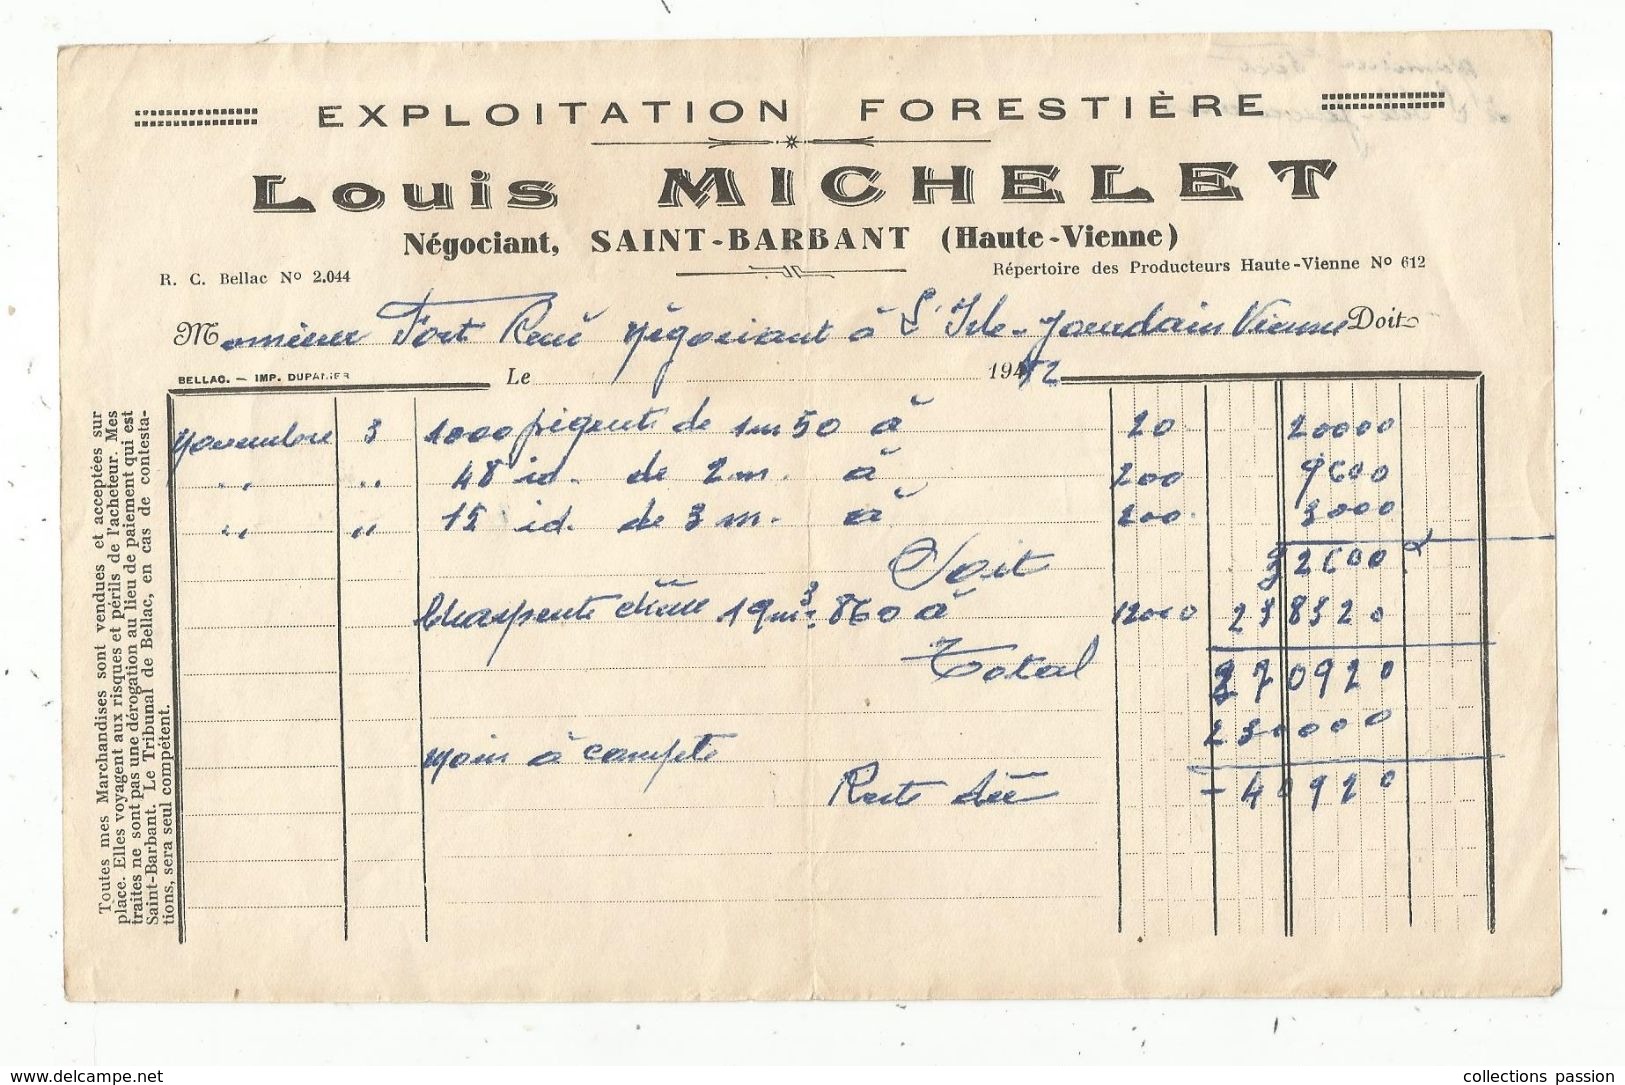 EXPLOITATION FORESTIÈRE
Louis MICHELET
Négociant, SAINT-BARBANT (Haute-Vienne)
R. C. Bellac Nº 2.044
Répertoire des Producteurs Haute-Vienne Nº 612
Monsieur Fort René Négociant à L'Isle-Jourdain Vienne Doit
BELLAC. — IMP. DUPANIER
Le 1952
Novembre 3 1000 pigente de 1m50 à 20 20000
" " 48 id. de 2 m. à 200 9600
" " 15 id. de 3 m. à 200 3000
Soit 32600
Charpente chêne 19m3 860 à 12000 238320
Total 270920
230000
moin à compte
Reste dûe - 40920
Toutes mes Marchandises sont vendues et acceptées sur
place. Elles voyagent aux risques et périls de l'acheteur. Mes
traites ne sont pas une dérogation au lieu de paiement qui est
Saint-Barbant. Le Tribunal de Bellac, en cas de contesta-
tions, sera seul compétent.
collections passion
www.delcampe.net